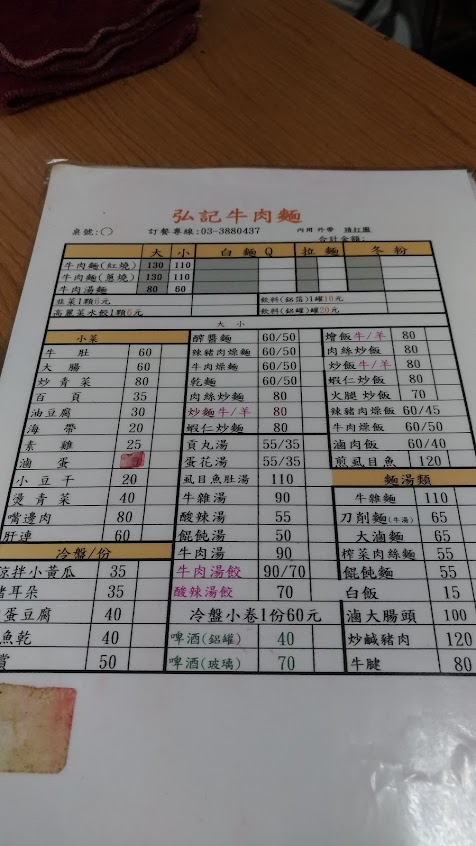 弘記牛肉麵
桌號:○ 訂餐專線:03-3880437 內用 外帶 請打圈
合計金額:
大 小 白麵Q 拉麵 冬粉
牛肉麵(紅燒) 130 110
牛肉麵(蔥燒) 130 110
牛肉湯麵 80 60
韭菜1顆6元 飲料(鋁箔)1罐10元
高麗菜水餃1顆6元 飲料(鋁罐)1罐20元
大 小
小菜
牛肚 60
大腸 60
炒青菜 80
百頁 35
油豆腐 30
海帶 20
素雞 25
滷蛋
小豆干 20
燙青菜 40
嘴邊肉 80
肝連 60
冷盤/份
涼拌小黃瓜 35
豬耳朵 35
蛋豆腐 40
魚乾 40
50
醡醬麵 60/50
辣豬肉燥麵 60/50
牛肉燥麵 60/50
乾麵 60/50
肉絲炒麵 80
炒麵牛/羊 80
蝦仁炒麵 80
貢丸湯 55/35
蛋花湯 55/35
虱目魚肚湯 110
牛雜湯 90
酸辣湯 55
餛飩湯 50
牛肉湯 90
牛肉湯餃 90/70
酸辣湯餃 70
冷盤小卷1份60元
啤酒(鋁罐) 40
啤酒(玻璃) 70
燴飯牛/羊 80
肉絲炒飯 80
炒飯牛/羊 80
蝦仁炒飯 80
火腿炒飯 70
辣豬肉燥飯 60/45
牛肉燥飯 60/50
滷肉飯 60/40
煎虱目魚 120
麵湯類
牛雜麵 110
刀削麵(牛湯) 65
大滷麵 65
榨菜肉絲麵 55
餛飩麵 55
白飯 15
滷大腸頭 100
炒鹹豬肉 120
牛腱 80